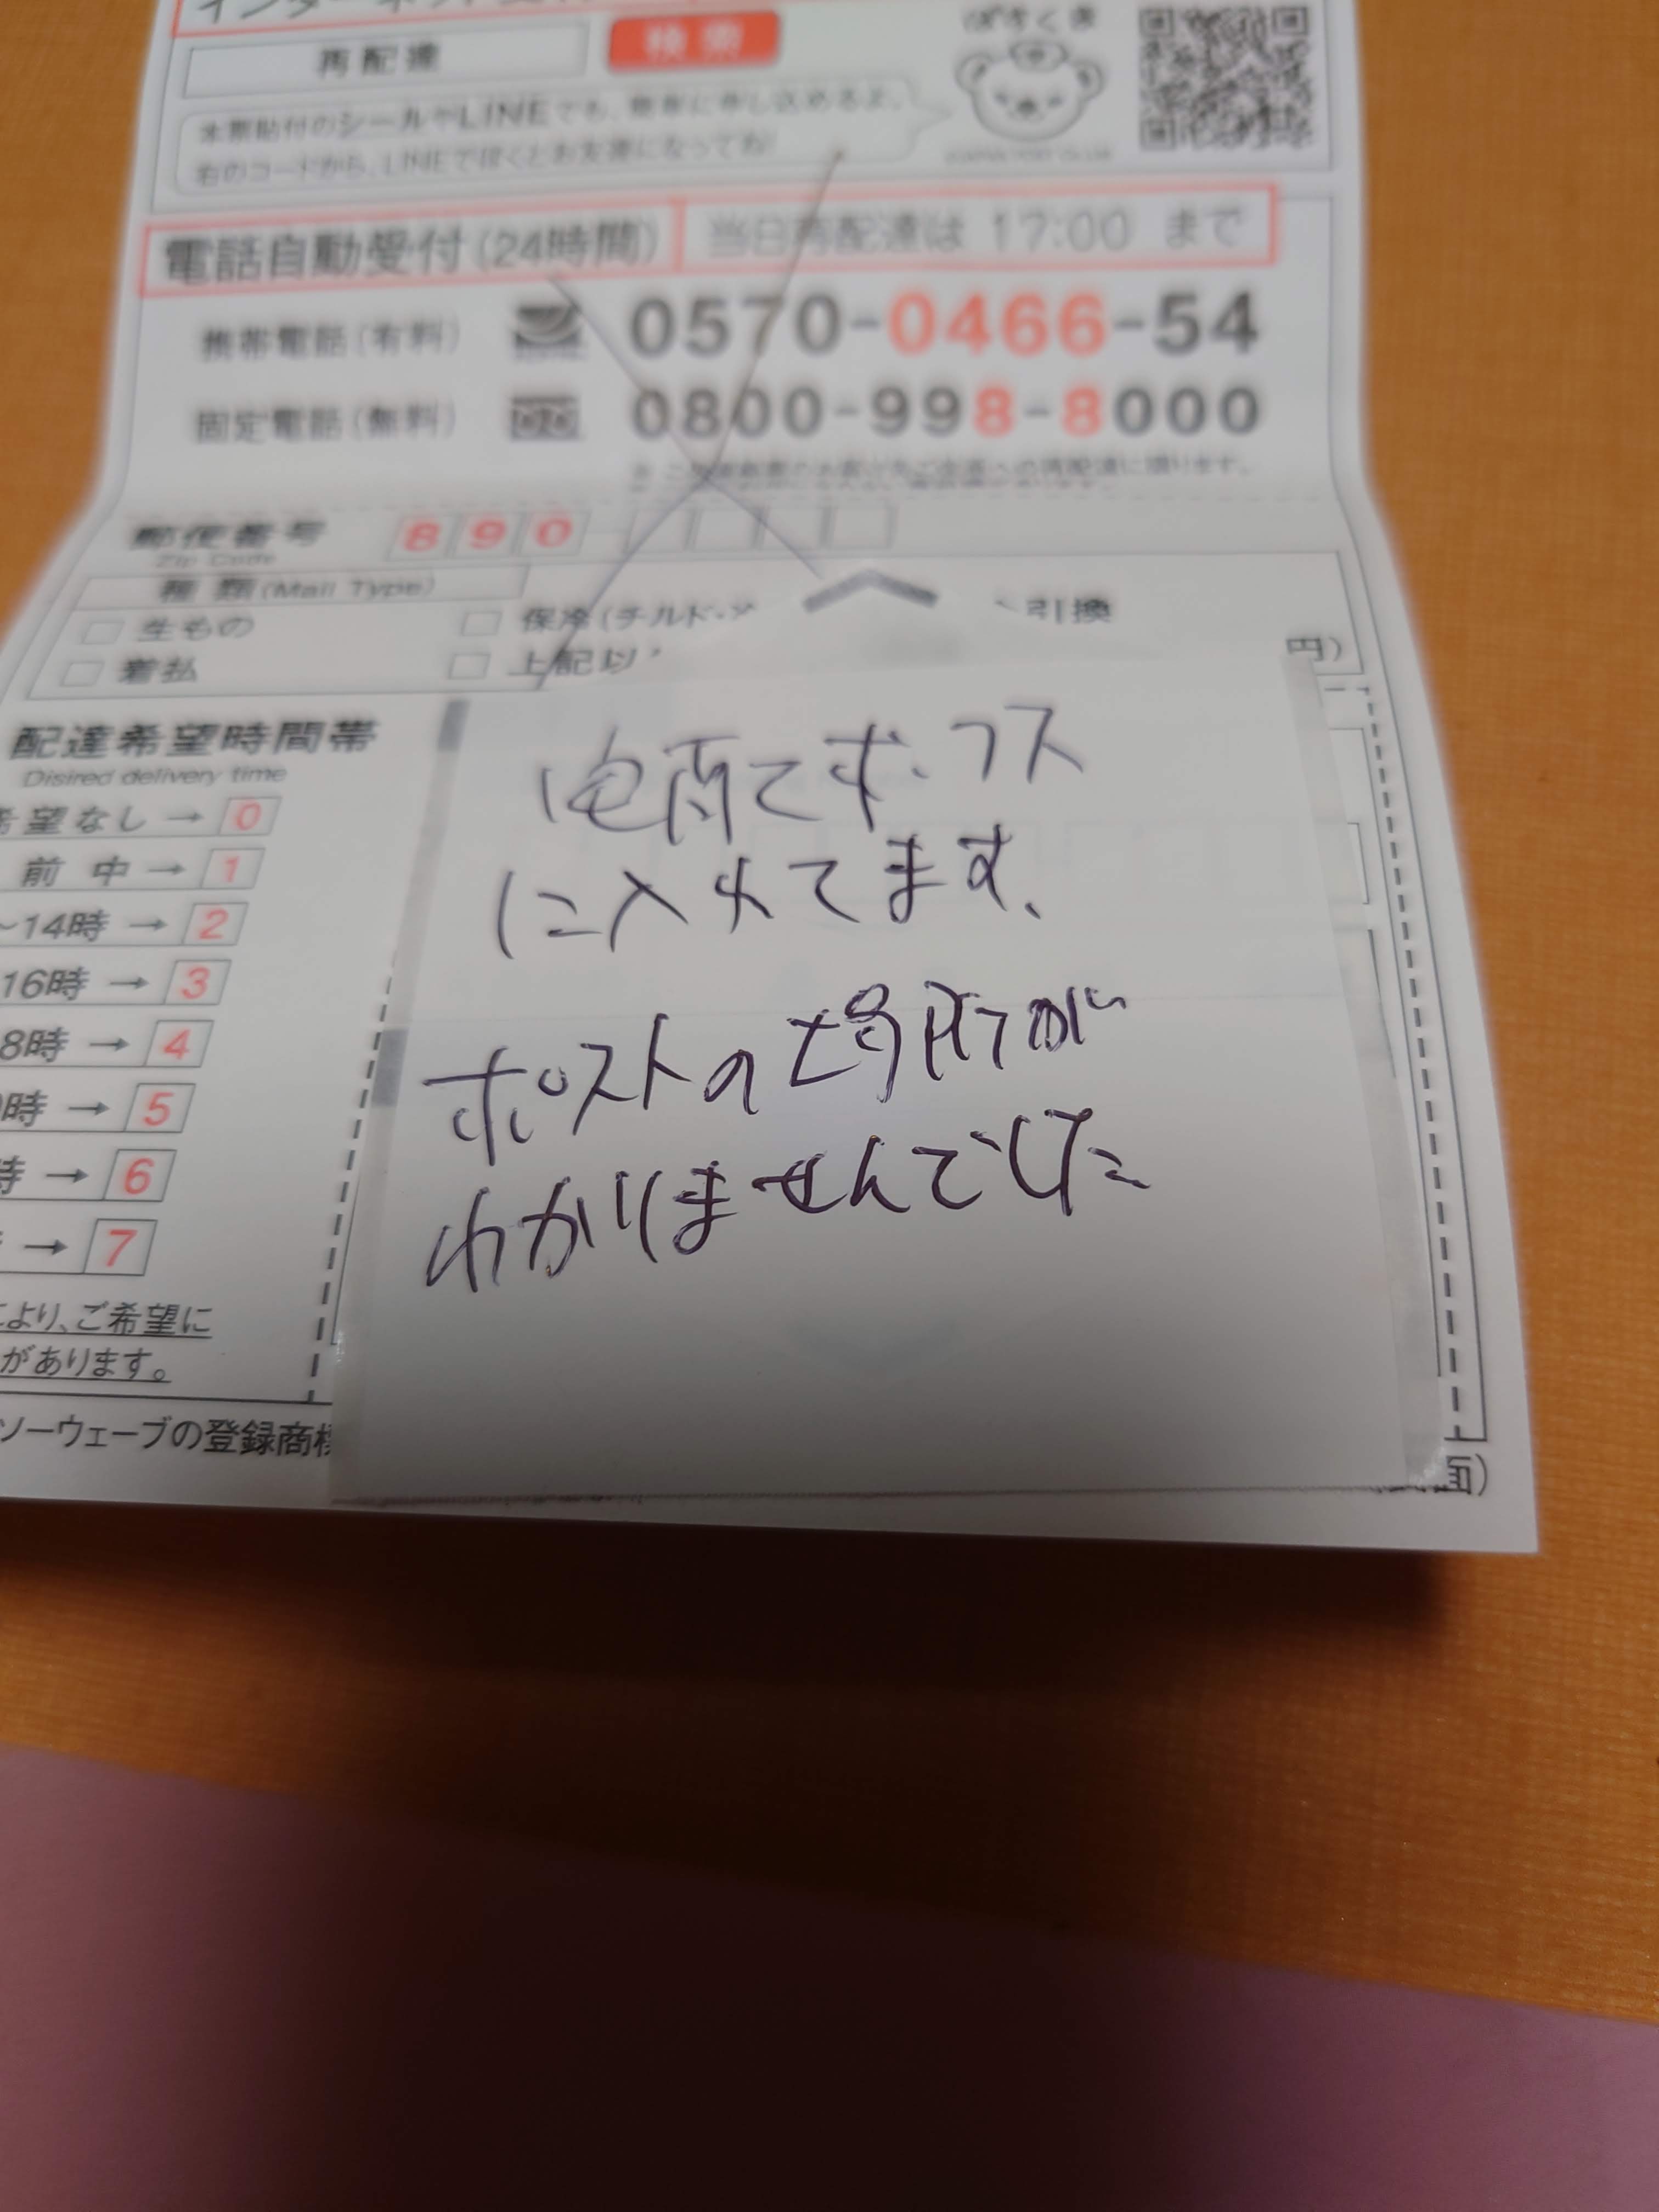 再配達
検索
ぽすくま
本票貼付のシールやLINEでも、簡単に申し込めるよ。
右のコードから、LINEでぼくとお友達になってね!
電話自動受付(24時間) 当日再配達は 17:00 まで
携帯電話(有料) 0570-0466-54
固定電話(無料) 0800-998-8000
郵便番号 890-
Zip Code
種類(Mail Type)
生もの 保冷(チルド 引換
着払 上記以 円)
配達希望時間帯
Disired delivery time
希望なし → 0
前中 → 1
~14時 → 2
16時 → 3
8時 → 4
時 → 5
時 → 6
→ 7
により、ご希望に
があります。
ソーウェーブの登録商標
面)
に入れてます、
ポストの場所が
わかりませんでした